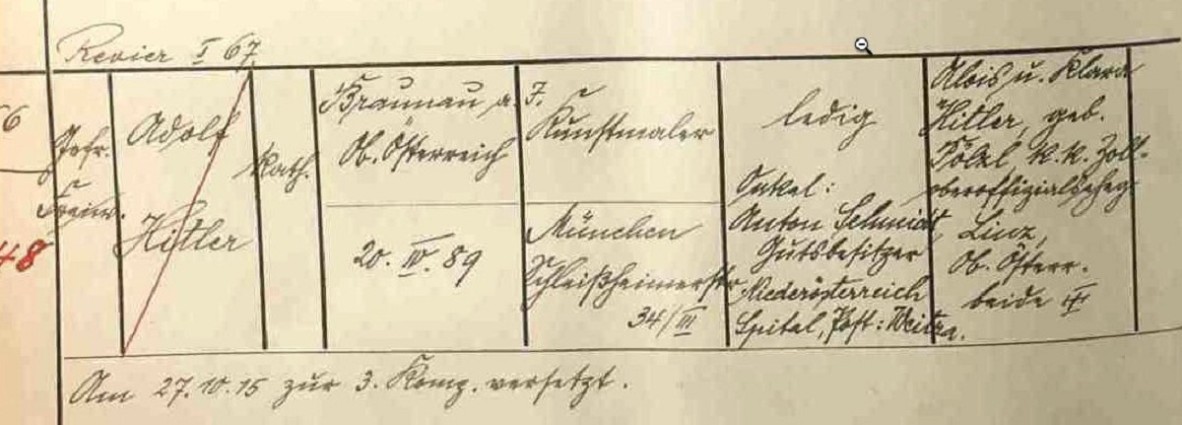 Revier I 67.
6
48
Gefr.
Freiw.
Adolf
Hitler
Kath.
Braunau a. I.
Ob. Österreich
20. IV. 89
Kunstmaler
München
Schleißheimerstr.
34/III
ledig
Onkel:
Anton Schmidt,
Gutsbesitzer
Niederösterreich
Spital, Post: Weitra.
Alois u. Klara
Hitler, geb.
Pölzl, k.k. Zoll-
oberoffizialseheg.
Linz,
Ob. Österr.
beide ✝
Am 27.10.15 zur 3. Komp. versetzt.